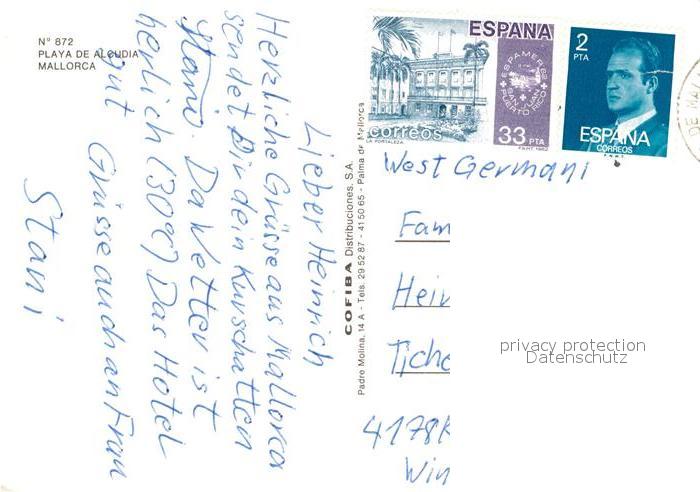 Nº 872
PLAYA DE ALCUDIA
MALLORCA
Lieber Heinrich
Herzliche Grüsse aus Mallorca
sendet Dir dein Kurschatten
Stani. Da Wetter ist
herlich (30°C) Das Hotel
gut Grüsse auch an Frau
Stani
COFIBA Distribuciones, S.A.
Padre Molina, 14 A - Tels. 29 52 87 - 41 50 65 - Palma de Mallorca
ESPAÑA
ESPAMER 82
SAN JUAN
PUERTO RICO
correos
33 PTA
LA FORTALEZA
F.N.M.T. 1982
2
PTA
ESPAÑA
CORREOS
F.N.M.T.
West Germani
Fam
Hein
Tiche
4178K
Win
privacy protection
Datenschutz